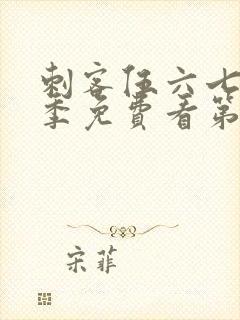 刺客伍六七
季免費看第
宋菲